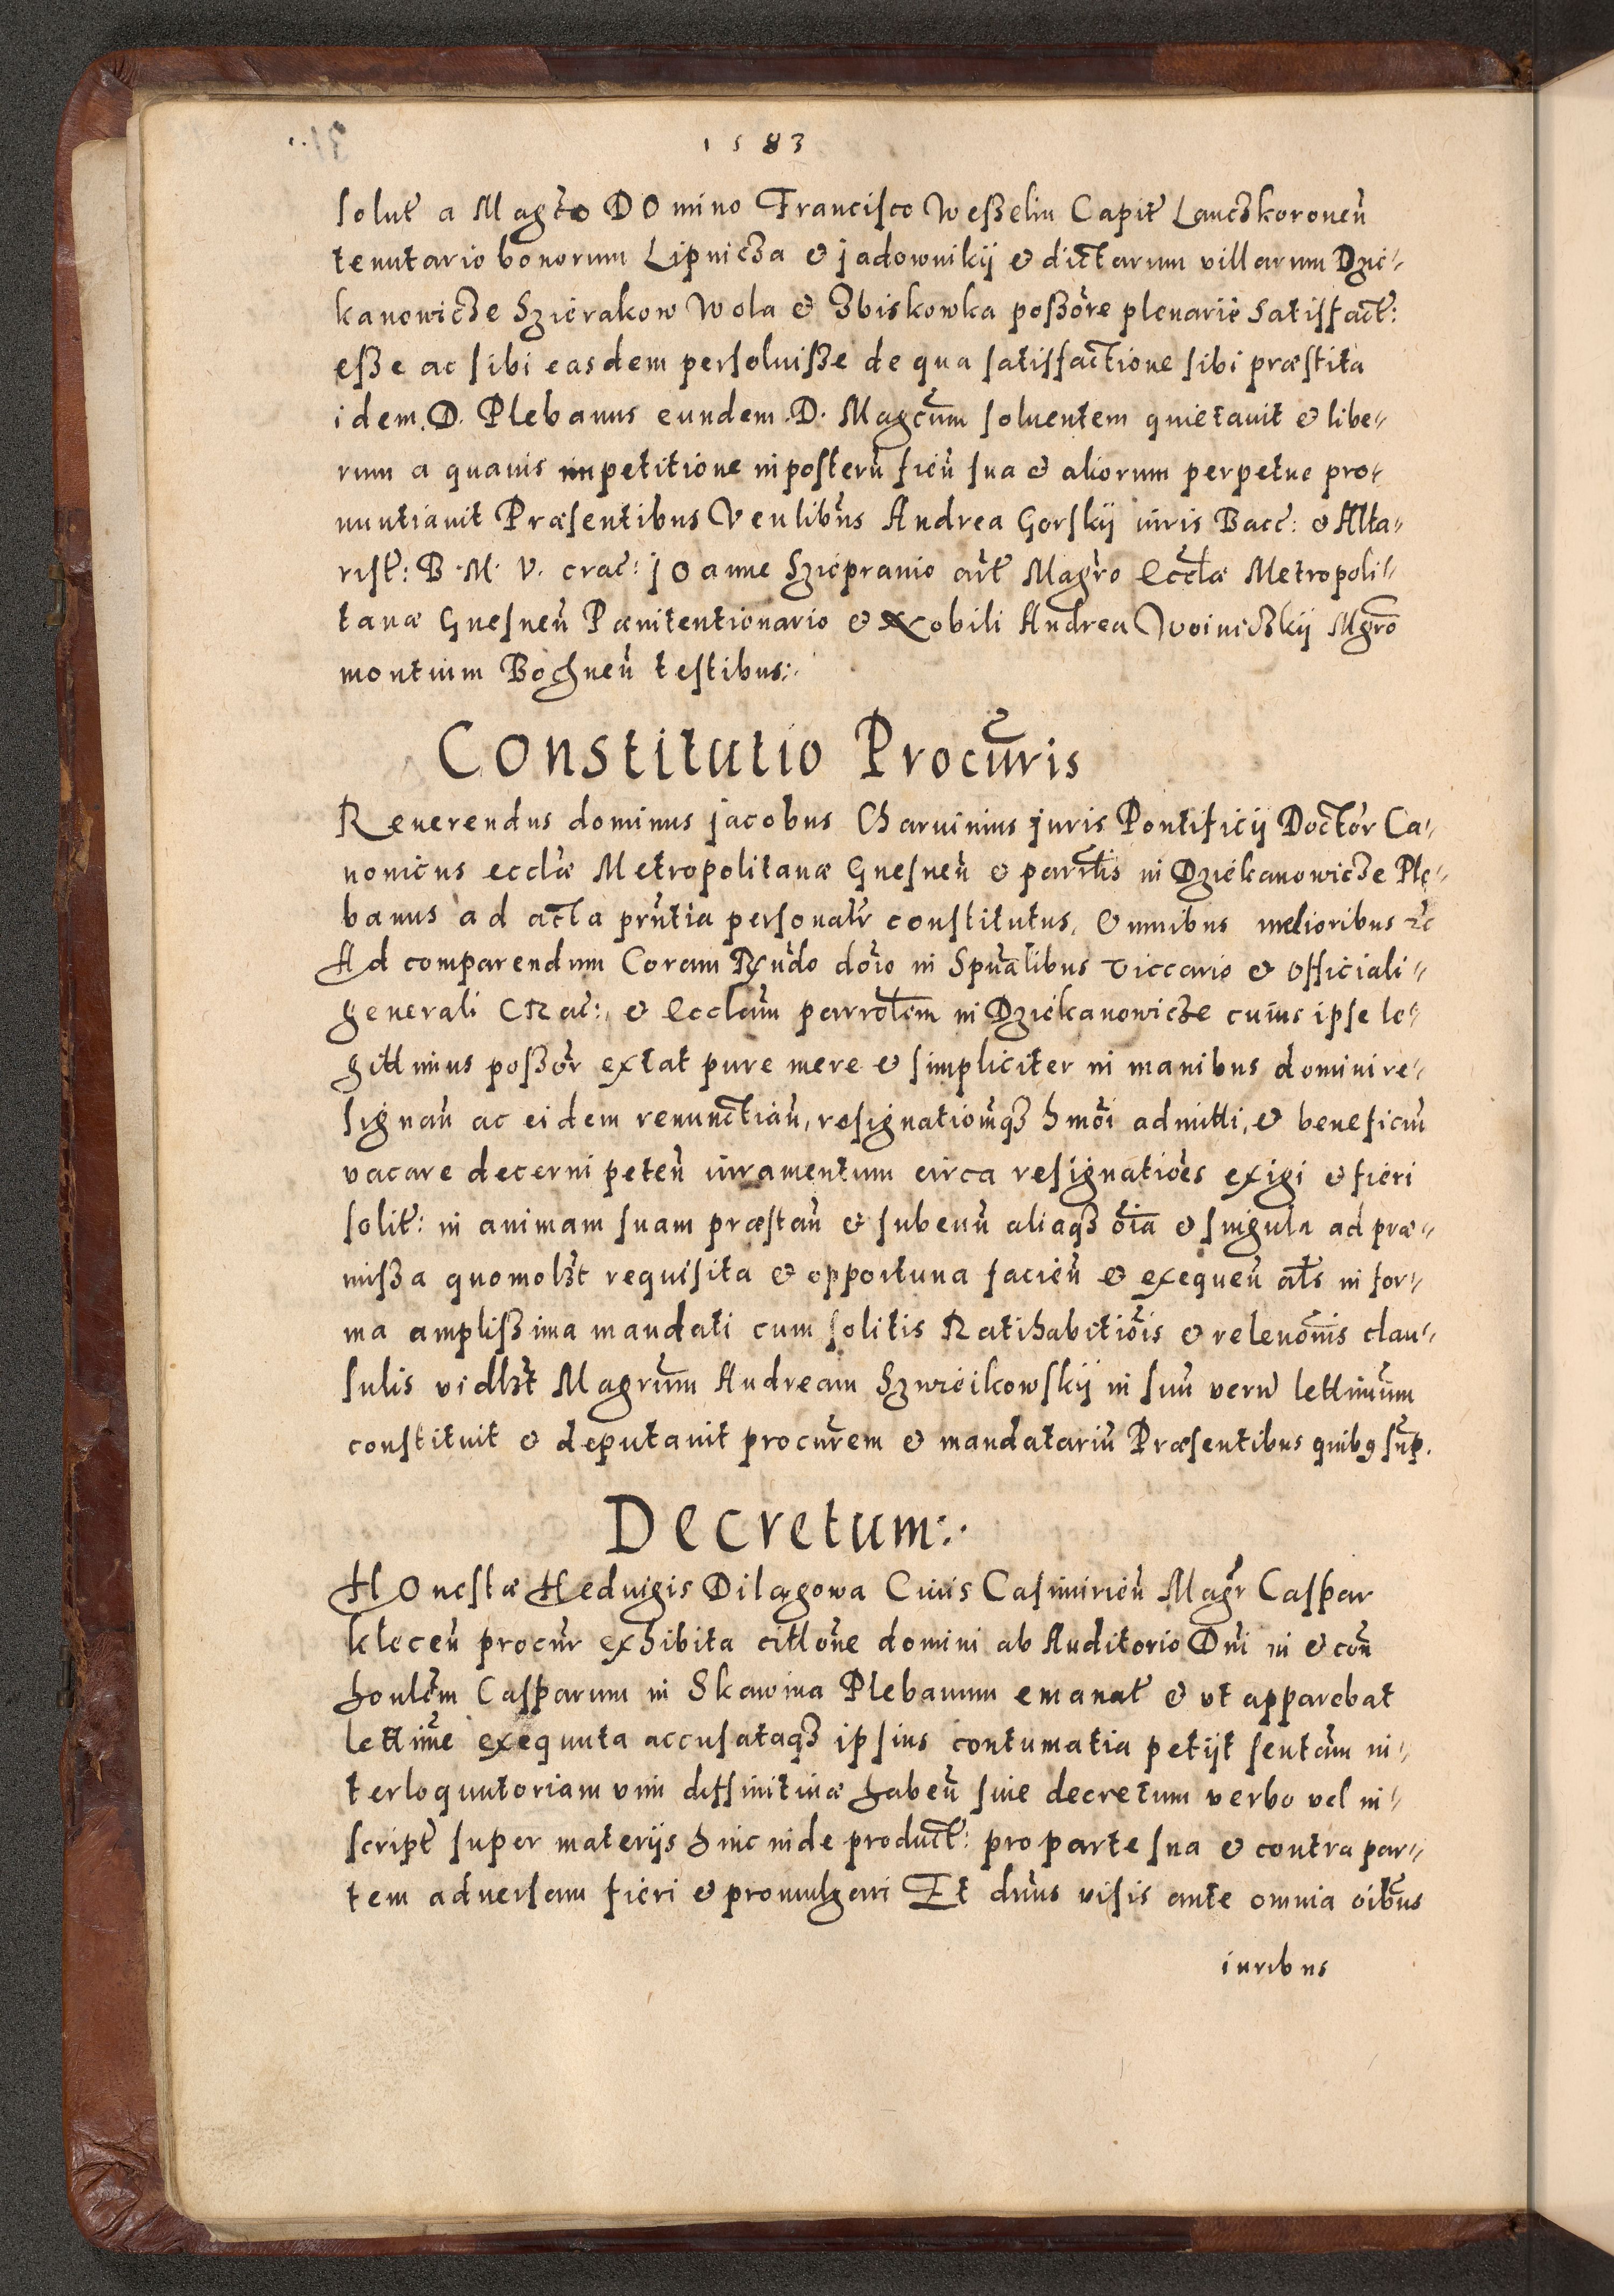 1583
solut a Magco DOmino Francisco Weßelin Capit Lanczkoronen
tenutario bonorum Lipnicza & jadownikij & dictarum villarum Dzie-
kanowicze Szierakow Wola & Zbiskowka poßore plenarie satisfact:
eße ac sibi easdem persoluiße de qua satisfactione sibi præstita
idem D. Plebanus eundem D. Magcum soluentem quietauit & libe-
rum a quauis impetitione in posterū ficū sua & aliorum perpetuc pro-
nuntiauit Præsentibus Venlibus Andrea Gorskij iuris Bacc: & Alta-
rist: B. M. V. crac: jOanne Sziepranio art Magro Eccłæ Metropoli-
tanæ Gnesnen Pænitentionario & Nobili Andrea Woiniczkij Mgro
montium Bochnen testibus:.
Constitutio Procuris
Reuerendus dominus jacobus Charuinius juris Pontificij Doctor Ca-
nonicus ecclæ Metropolitanæ Gnesnen & parrtis in Dziekanowicze Ple-
banus ad acta prntia personalr constitutus, Omnibus melioribus &c
Ad comparendum Coram Rndo doio in Spualibus viccario & Officiali-
generali CRac: & Ecclam parrolem in Dziekanowicze cuius ipse le-
gittimus poßor extat pure mere & simpliciter in manibus domini re-
signan ac eidem renunctian, resignationqz hmoi admitti, & beneficiū
vacare decerni peten iuramentum circa resignatioes exigi & fieri
solit: in animam suam præstan & subeun aliaqz oia & singula ad præ-
mißa quomolzt requisita & opportuna facien & exequen als in for-
ma amplißima mandati cum solitis Ratihabitiois & releuonis clau-
sulis vidlzt Magrum Andream Szwieikowskij in suū verū lettimum
constituit & deputauit procurem & mandatariū Præsentibus quibus sup.
Decretum:.
HOnestæ Heduigis Dilągowa Ciuis Casimirien Magr Caspar
kleceu procur exhibita cittone domini ab Auditorio Dni in & con
honlem Casparum in Skawina Plebanum emanat & vt apparebat
lettime exequuta accusataqz ipsius contumatia petijt sentam in-
terloquutoriam vim diffinitiuæ haben siue decretum verbo vel in-
script super materijs hinc inde product: pro parte sua & contra par-
tem aduersam fieri & promulgari Et dnus visis ante omnia oibus
iuribus